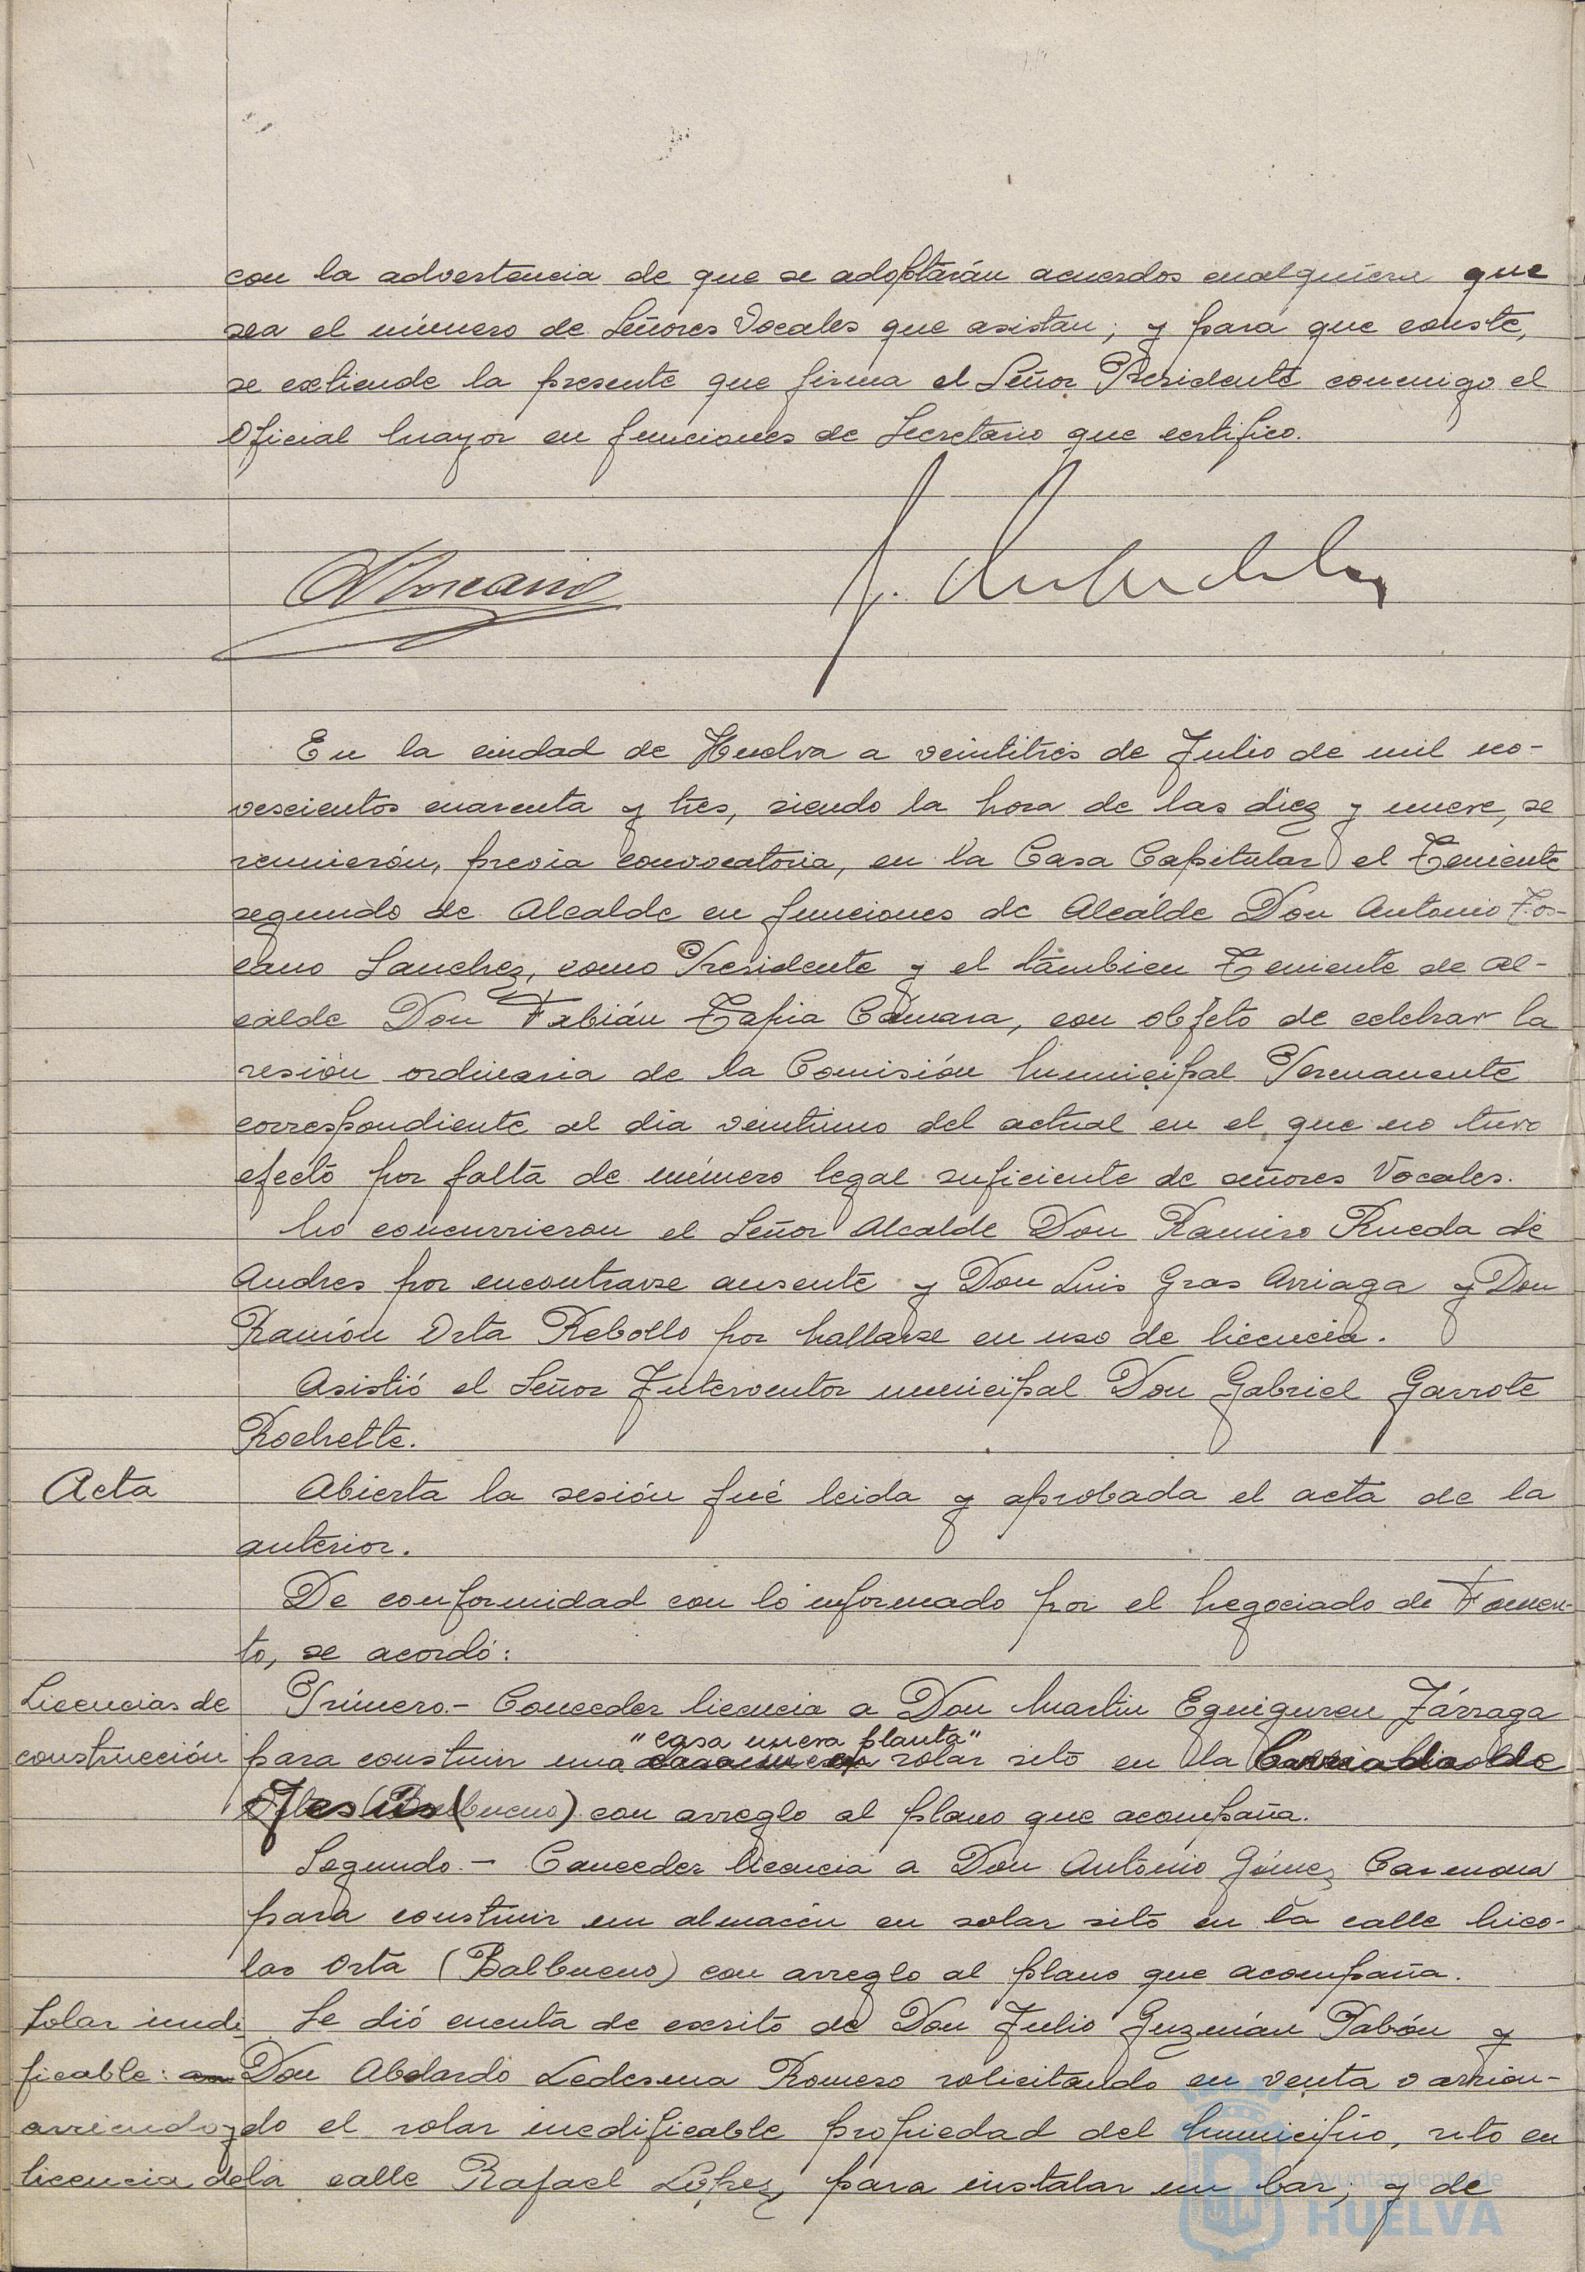 con la advertencia de que se adoptarán acuerdos cualquiera que
sea el número de Señores Vocales que asistan; y para que conste,
se extiende la presente que firma el Señor Presidente conmigo el
Oficial Mayor en funciones de Secretario que certifico.
En la ciudad de Huelva a veintitrés de Julio de mil no-
vescientos cuarenta y tres, siendo la hora de las diez y nueve, se
reunierón, previa convocatoria, en la Casa Capitular el Teniente
segundo de Alcalde en funciones de Alcálde Don Antonio Tos-
cano Sanchez, como Presidente y el támbien Teniente de Al-
calde Don Fabián Tapia Cámara, con objeto de celebrar la
sesión ordinaria de la Comisión Municipal Permanente
correspondiente al dia veintiuno del actual en el que no tuvo
efecto por falta de número legal suficiente de señores Vocales.
No concurrieron el Señor Alcalde Don Ramiro Rueda de
Andres por encontrarse ausente y Don Luis Gras Arriaga y Don
Ramón Orta Rebollo por hallarse en uso de licencia.
Asistió el Señor Interventor municipal Don Gabriel Garrote
Rochette.
Acta Abierta la sesión fué leida y aprobada el acta de la
anterior.
De conformidad con lo informado por el Negociado de Fomen-
to, se acordó:
Licencias de Primero.- Conceder licencia a Don Martin Eguiguren Zárraga
"casa nueva planta"
construcción para construir una solar sito en la
Jesús (Balbueno) con arreglo al plano que acompaña.
Segundo.- Conceder licencia a Don Antonio Gómez Carmona
para construir un almacén en solar sito en la calle Nico-
las Orta (Balbueno) con arreglo al plano que acompaña.
Solar inedi Se dió cuenta de escrito de Don Julio Guzmán Pabón y
ficable: Don Abelardo Ledesma Romero solicitando en venta o arrien-
arriendo y do el solar inedificable propiedad del Municipio, sito en
licencia de la calle Rafael López, para instalar un bar; y de
Ayuntamiento de
HUELVA